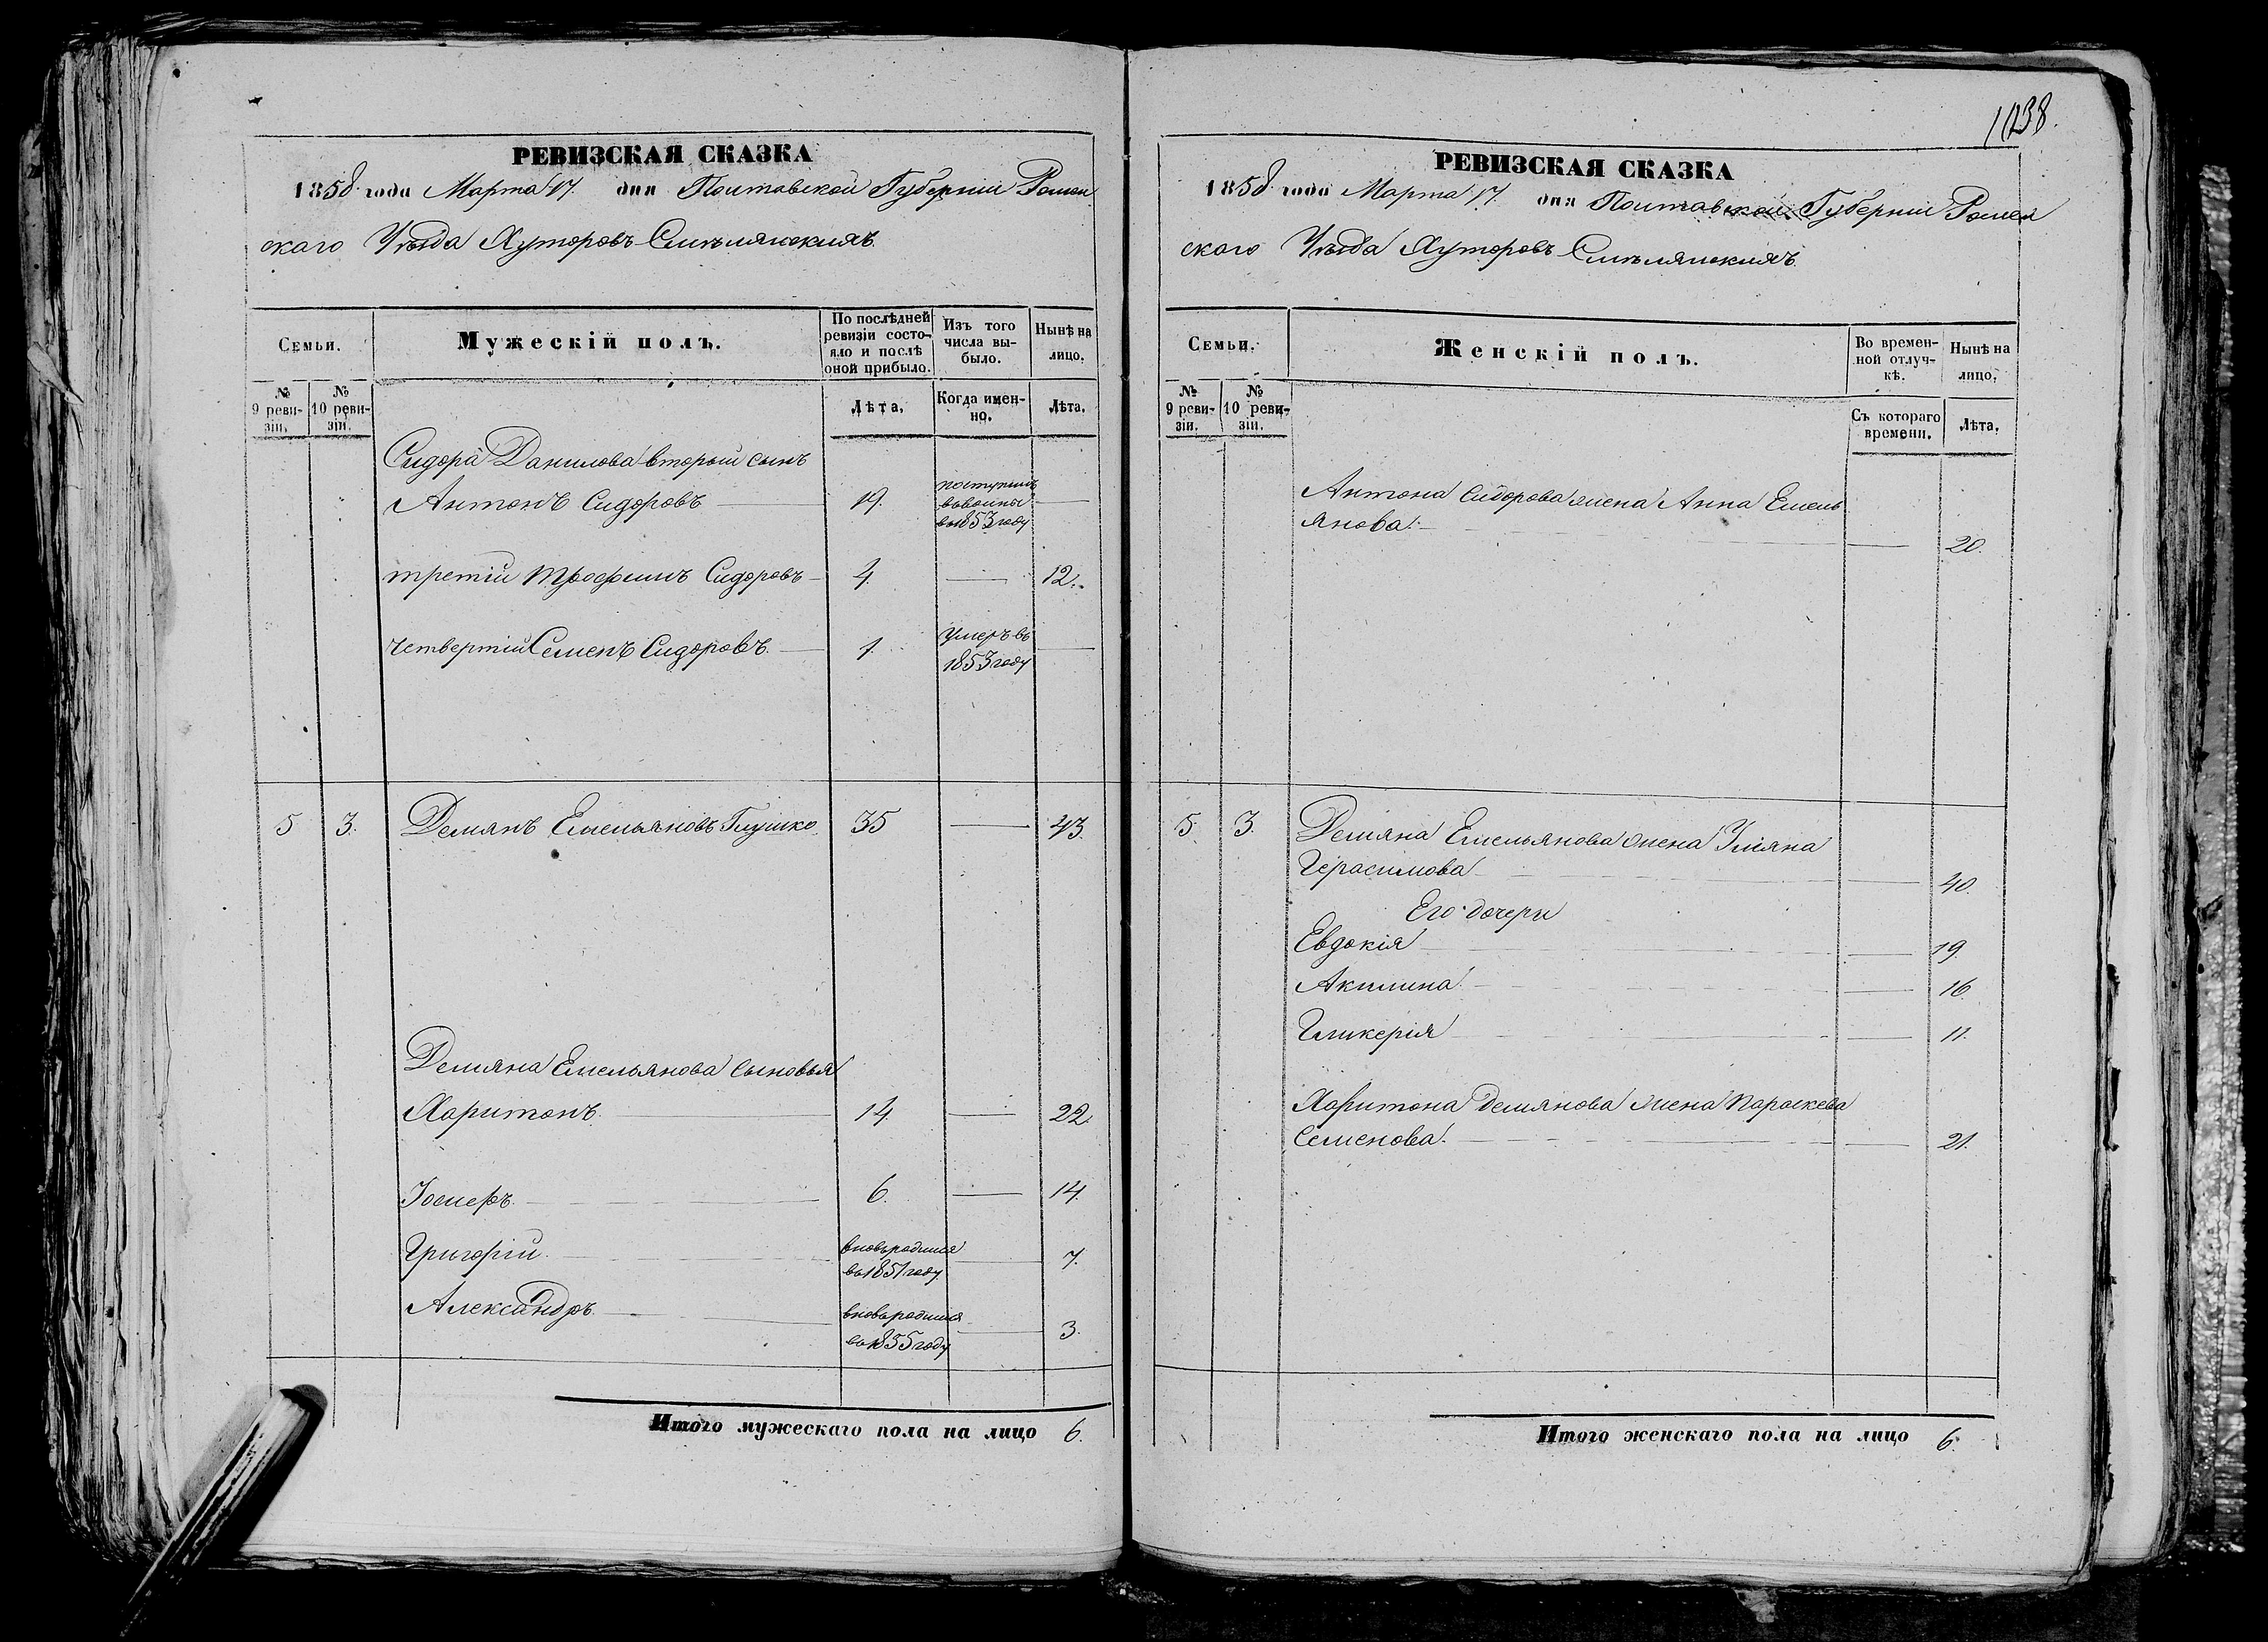 РЕВИЗСКАЯ СКАЗКА
1858 года Марта 17. дня Полтавской Губерніи Ромен
скаго Уѣзда Хуторовъ Смѣлянскихъ
Семьи.
Мужескій полъ.
По послѣдней ревизіи состояло и послѣ оной прибыло.
Изъ того числа выбыло.
Нынѣ на лицо.
№ 9 ревизіи.
№ 10 ревизіи.
Лѣта.
Когда именно.
Лѣта.
Сидора Данилова второй сынъ
Антонъ Сидоровъ 19.
поступилъ
въ воины
въ 1853 году
третій Трофимъ Сидоровъ 4. 12.
четвертій Семенъ Сидоровъ. 1.
умеръ въ
1853 году
5 3. Демянъ Емельяновъ Глушко. 35 43.
Демяна Емельянова сыновья
Харитонъ. 14 22.
Іосифъ. 6. 14.
Григорій. вновьродился
въ 1851 году 7.
Александръ. вновьродился
въ 1855 году 3.
Итого мужескаго пола на лицо 6.
1038.
РЕВИЗСКАЯ СКАЗКА
1858 года Марта 17. дня Полтавской Губерніи Ромен
скаго Уѣзда Хуторовъ Смѣлянскихъ.
Семьи.
Женскій полъ.
Во временной отлучкѣ.
Нынѣ на лицо.
№ 9 ревизіи.
№ 10 ревизіи.
Съ котораго времени.
Лѣта.
Антона Сидорова жена Анна Емель
янова. 20.
5. 3. Демяна Емельянова жена Уліяна
Герасимова 40.
Его дочери
Евдокія 19.
Акилина. 16.
Гликерія 11.
Харитона Демянова жена Параскева
Семенова. 21.
Итого женскаго пола на лицо 6.